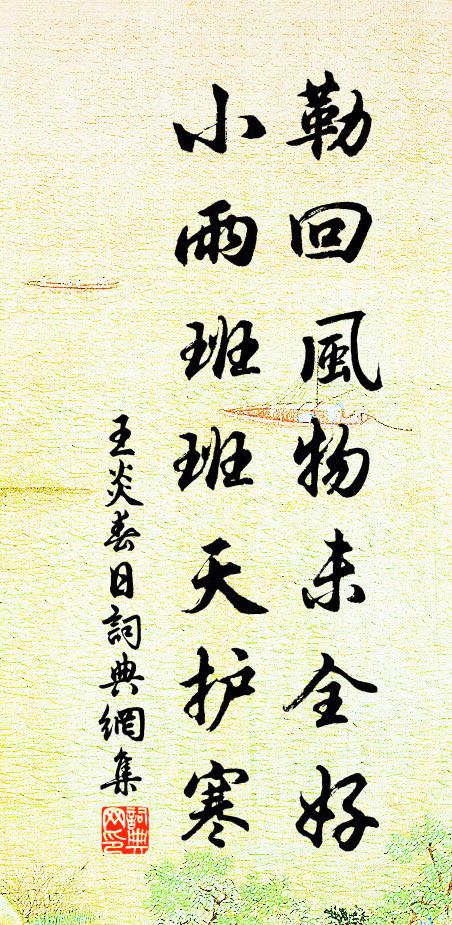 勒回風物未全好
小雨班班天护寒
王炎春日詞典網集
詞典
网印